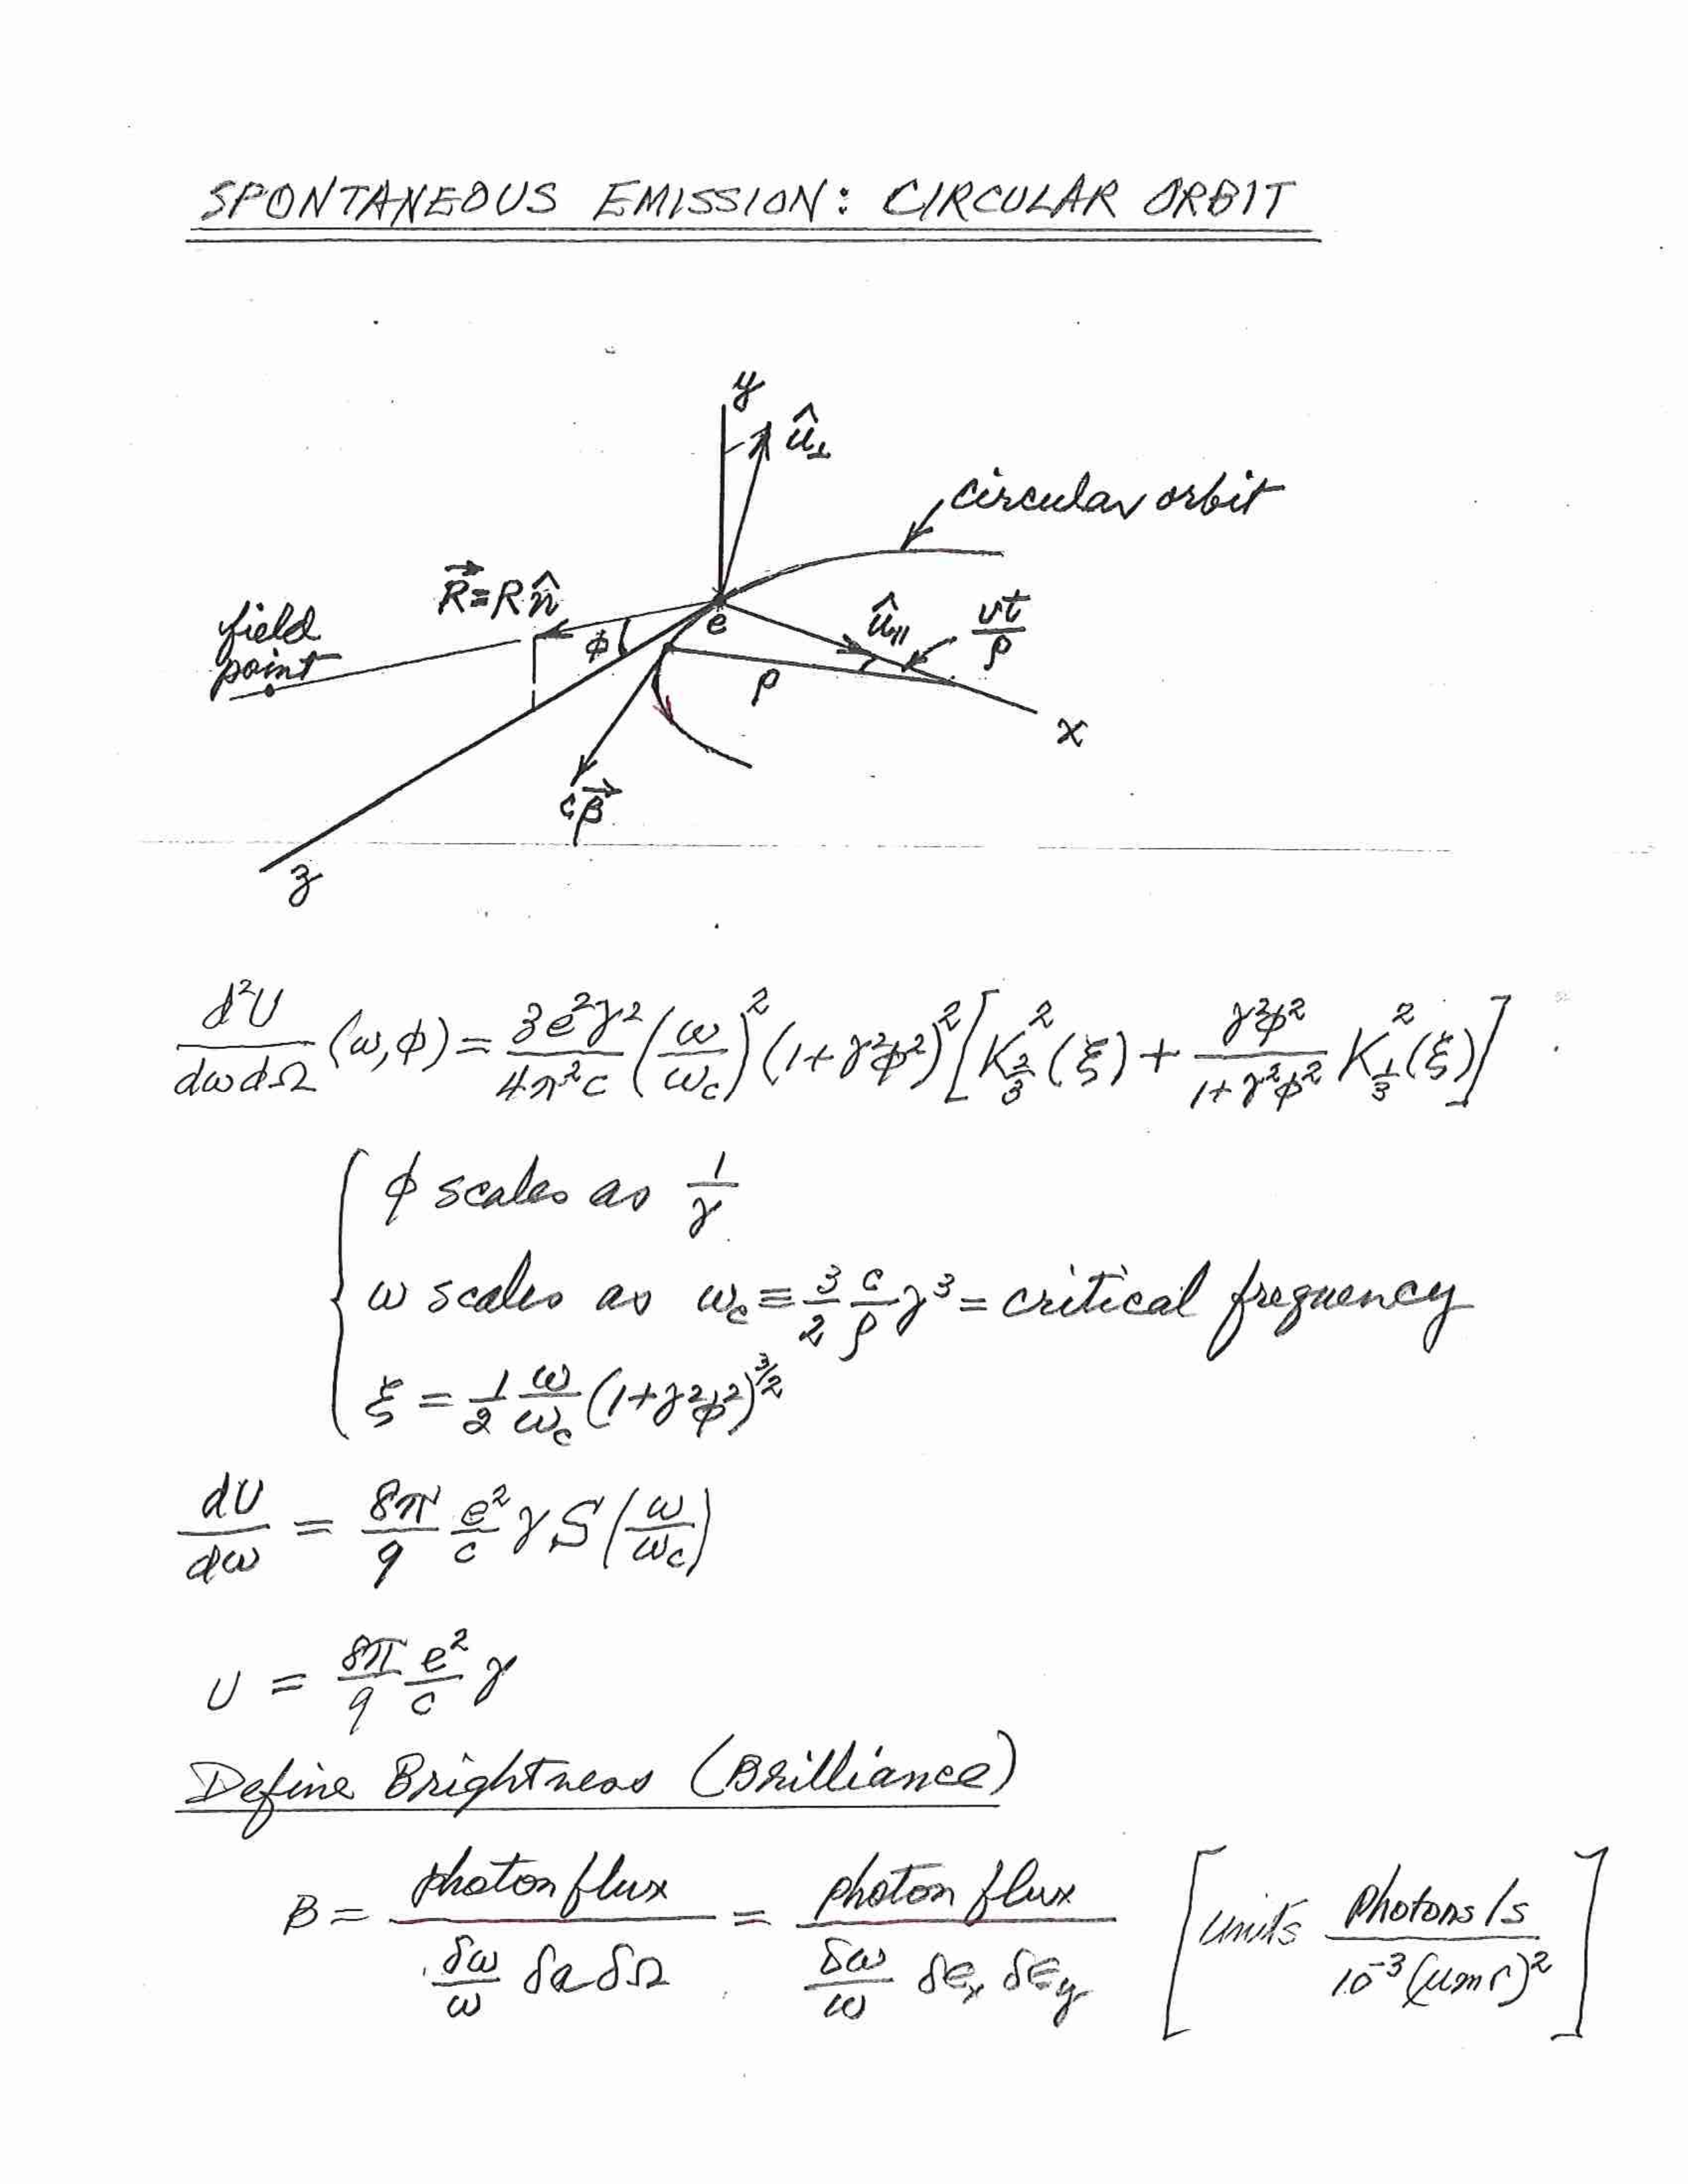 SPONTANEOUS EMISSION: CIRCULAR ORBIT
y
û⊥
circular orbit
R⃗≡Rn̂
field
point
φ
e
û∥
vt/ρ
ρ
x
cβ⃗
z
d²U/dωdΩ (ω,φ) = 3e²γ²/4π²c (ω/ω_c)² (1+γ²φ²)² [K²_{2/3}(ξ) + γ²φ²/(1+γ²φ²) K²_{1/3}(ξ)]
φ scales as 1/γ
ω scales as ω_c ≡ 3/2 c/ρ γ³ = critical frequency
ξ = 1/2 ω/ω_c (1+γ²φ²)^{3/2}
dU/dω = 8π/9 e²/c γ S(ω/ω_c)
U = 8π/9 e²/c γ
Define Brightness (Brilliance)
B = photon flux / (δω/ω δa δΩ) = photon flux / (δω/ω δϵ_x δϵ_y) [units photons/s / 10⁻³(μmr)²]